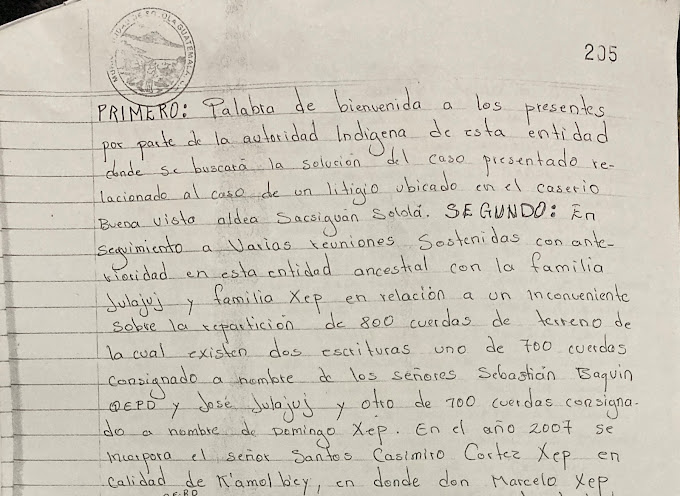 MUNICIPALIDAD DE SOLOLA GUATEMALA, C.A.
205
PRIMERO: Palabra de bienvenida a los presentes
por parte de la autoridad Indigena de esta entidad
donde se buscará la solución del caso presentado re-
lacionado al caso de un litigio ubicado en el caserio
Buena vista aldea Sacsiguán Sololá. SEGUNDO: En
seguimiento a Varias reuniones Sostenidas con ante-
rioridad en esta entidad ancestral con la familia
Julajuj y familia Xep en relación a un inconveniente
sobre la repartición de 800 cuerdas de terreno de
la cual existen dos escrituras uno de 700 cuerdas
consignado a nombre de los señores Sebastián Baquin
QEPD y José Julajuj y otro de 700 cuerdas consigna-
do a nombre de Domingo Xep. En el año 2007 se
incorpora el señor Santos Casimiro Cortez Xep en
calidad de K'amolbey, en donde don Marcelo Xep